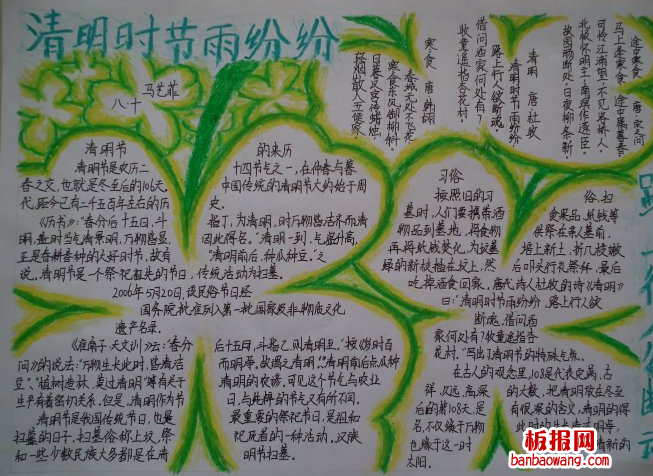 清明时节雨纷纷
马艺菲
八十
寒食 唐 韩翃
春城无处不飞花
寒食东风御柳斜。
日暮汉宫传蜡烛，
轻烟散入五侯家
清明 唐 杜牧
清明时节雨纷纷
路上行人欲断魂。
借问酒家何处有？
牧童遥指杏花村。
途中寒食 唐·宋之问
马上逢寒食，途中属暮春
可怜江浦望，不见洛桥人。
北极怀明主，南溟作逐臣。
故园肠断处，日夜柳条新。
清明节
清明节是农历二
春之交，也就是冬至后的108天。
代，距今已有二千五百年左右的历
《历书》："春分后十五日，斗
明，盖时当气清景明，万物皆显，
正是春耕春种的大好时节，故有
说。清明节是一个祭祀祖先的节日，传统活动为扫墓。
2006年5月20日，该民俗节日经
国务院批准列入第一批国家级非物质文化
遗产名录。
的来历
十四节气之一，在仲春与暮
中国传统的清明节大约始于周
史。
指丁，为清明，时万物皆洁齐而清
因此得名。"清明一到，气温升高，
"清明前后，种瓜种豆。"之
习俗
按照旧的习
墓时，人们要携带酒
物品到墓地，将食物
再将纸钱焚化，为坟墓
绿的新枝插在坟上，然
吃掉酒食回家。唐代诗人杜牧的诗《清明》
俗，扫
食品、纸钱等
供祭在亲人墓前，
培上新土，折几枝嫩
后叩头行礼祭拜，最后
曰："清明时节雨纷纷，路上行人欲
断魂。借问酒
家何处有？牧童遥指杏
花村。"写出了清明节的特殊气氛。
《淮南子·天文训》云："春分
问》的说法："万物生长此时，皆清洁
清明节是我国传统节日，也是
扫墓的日子。扫墓俗称上坟，祭
和一些少数民族大多都是在清
后十五日，斗指乙，则清明至。"按《岁时百
而明净，故谓之清明。""清明前后点瓜种
清明的农谚，可见这个节气与农业
日，与纯粹的节气又有所不同。
最重要的祭祀节日，是祖和
祀死者的一种活动。汉族
明节扫墓。
在古人的观念里，108是代表完满、吉
祥、久远、高深
后的第108天，是
名，不仅缘于万物
也缘于这一时
太阳。
的大数，把清明放在冬至
有很深的含义，清明的得
板报网
banbaowang.com